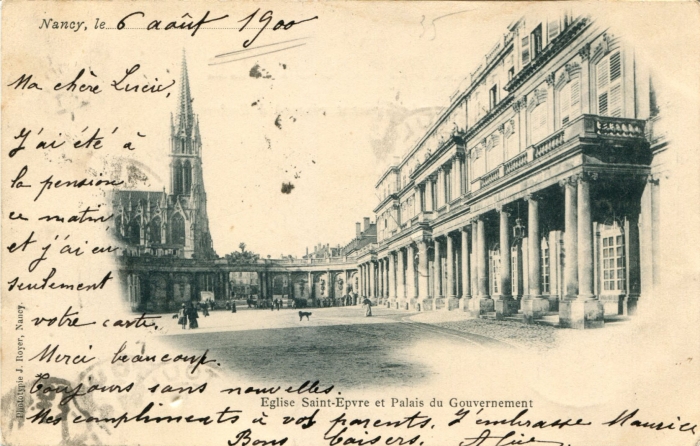 Nancy, le 6 août 1900
35
Ma chère Lucie,
J'ai été à
la pension
ce matin
et j'ai eu
seulement
votre carte.
Merci beaucoup.
Toujours sans nouvelles.
Mes compliments à vos parents. J'embrasse Maurice
Bons baisers.
Phototypie J. Royer, Nancy.
Eglise Saint-Epvre et Palais du Gouvernement